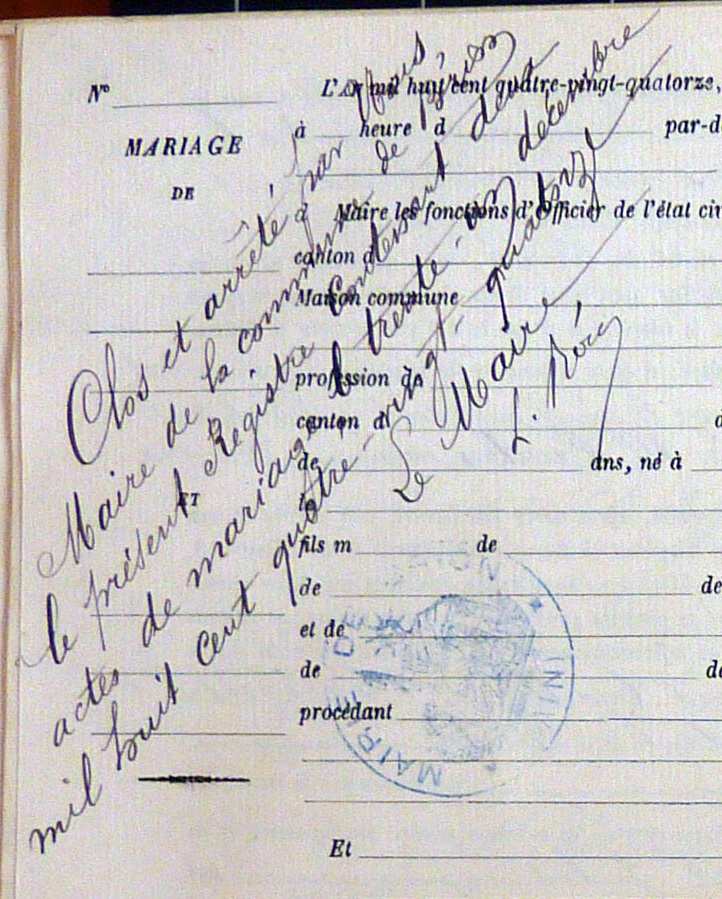 N°
MARIAGE
DE
ET
L'An mil huit cent quatre-vingt-quatorze,
à heure d par-d
d Maire les fonctions d'Officier de l'état civ
canton d
Maison commune
profession de
canton d
de ans, né à
le
fils m de
de de
et de
de de
procédant
Et
Clos et arrêté par Nous,
Maire de la commune de
le présent Registre Contenant deux
actes de mariage le trente-un décembre
mil huit cent quatre-vingt-quatorze
Le Maire
MAIRIE DE